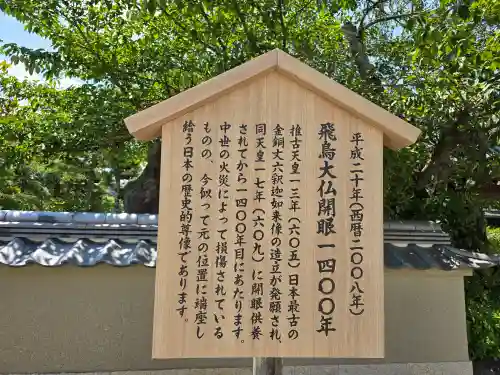 平成二十年(西暦二〇〇八年)
飛鳥大仏開眼一四〇〇年
推古天皇一三年(六〇五)日本最古の
金銅丈六釈迦如来像の造立が発願され、
同天皇一七年(六〇九)に開眼供養
されてから一四〇〇年目にあたります。
中世の火災によって損傷されている
ものの、今似って元の位置に端座し
給う日本の歴史的尊像であります。